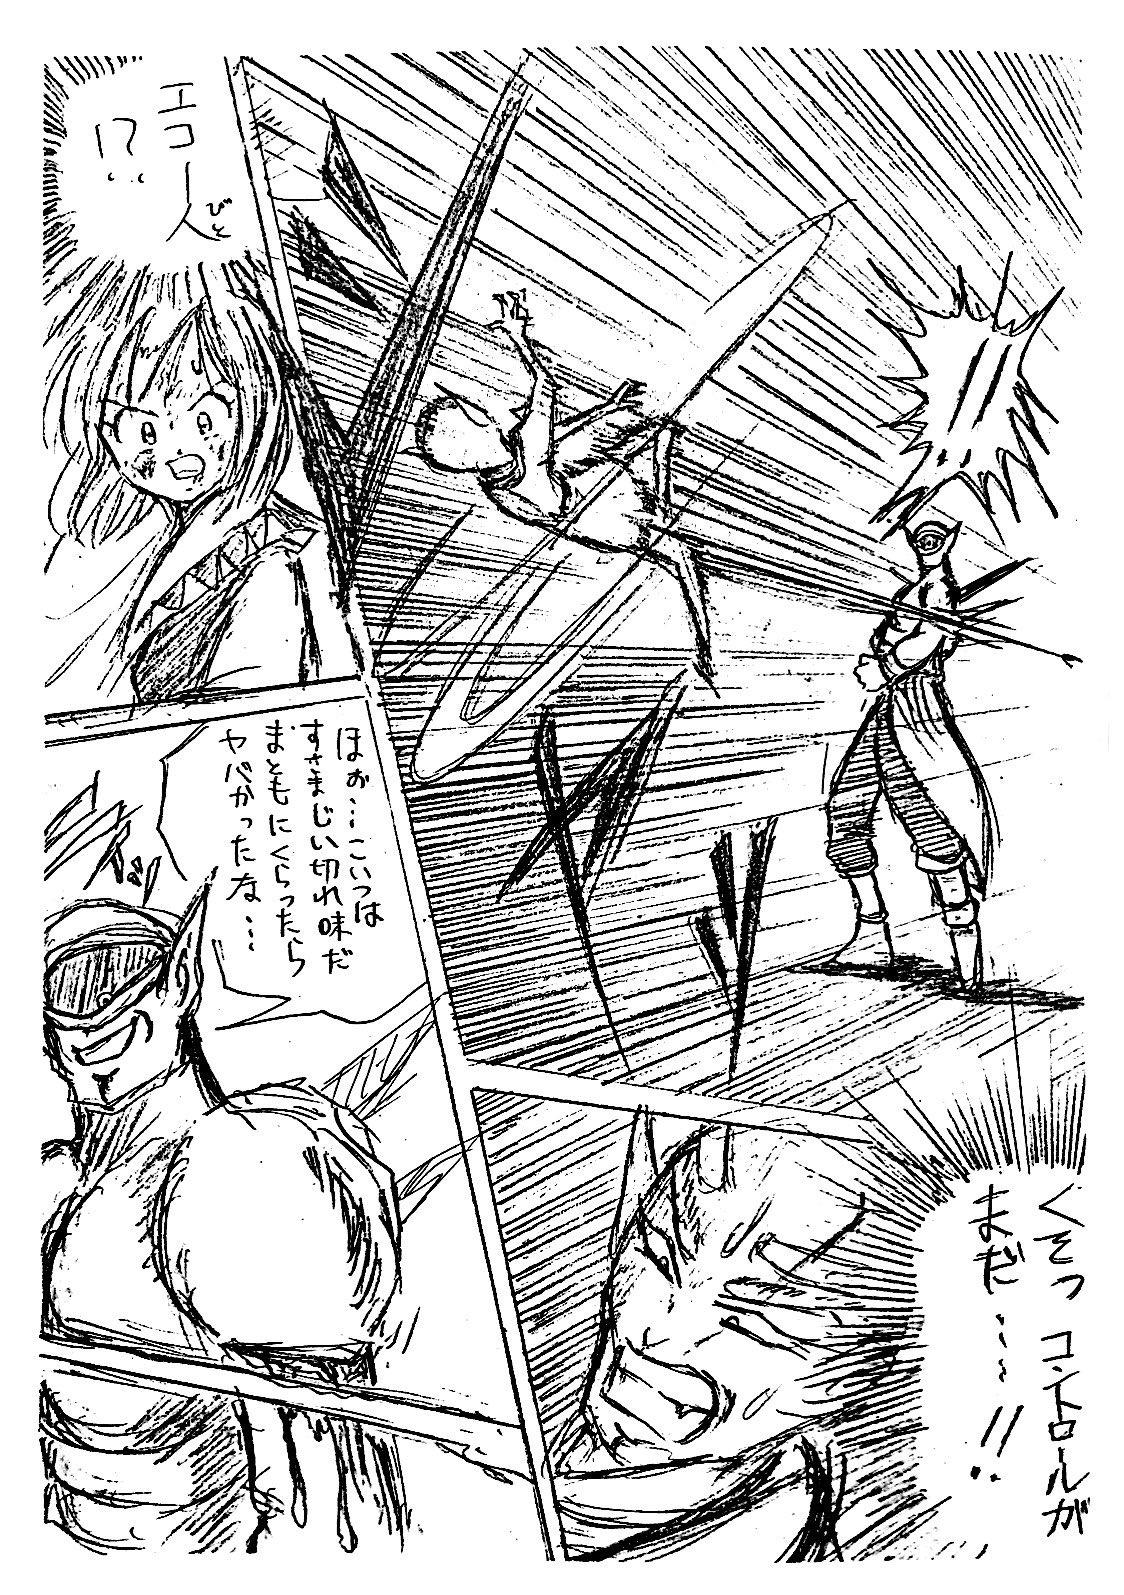 !!
くそっ コントロールが
まだ……!!
エコー人
びと
!?
ほぉ…こいつは
すさまじい切れ味だ
まともにくらったら
ヤバかったな……